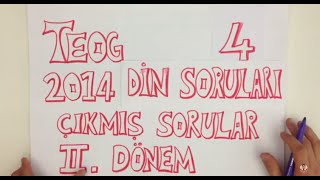 TEOG 4
2014 DİN SORULARI
ÇIKMIŞ SORULAR
II. DÖNEM